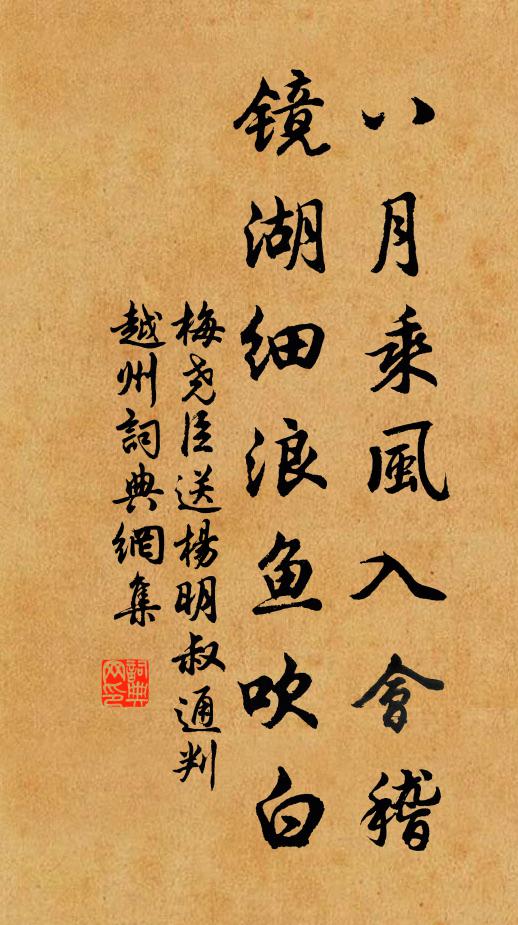 八月乘風入會稽
镜湖细浪鱼吹白
梅尧臣送楊明叔通判
越州詞典網集
詞典
网印